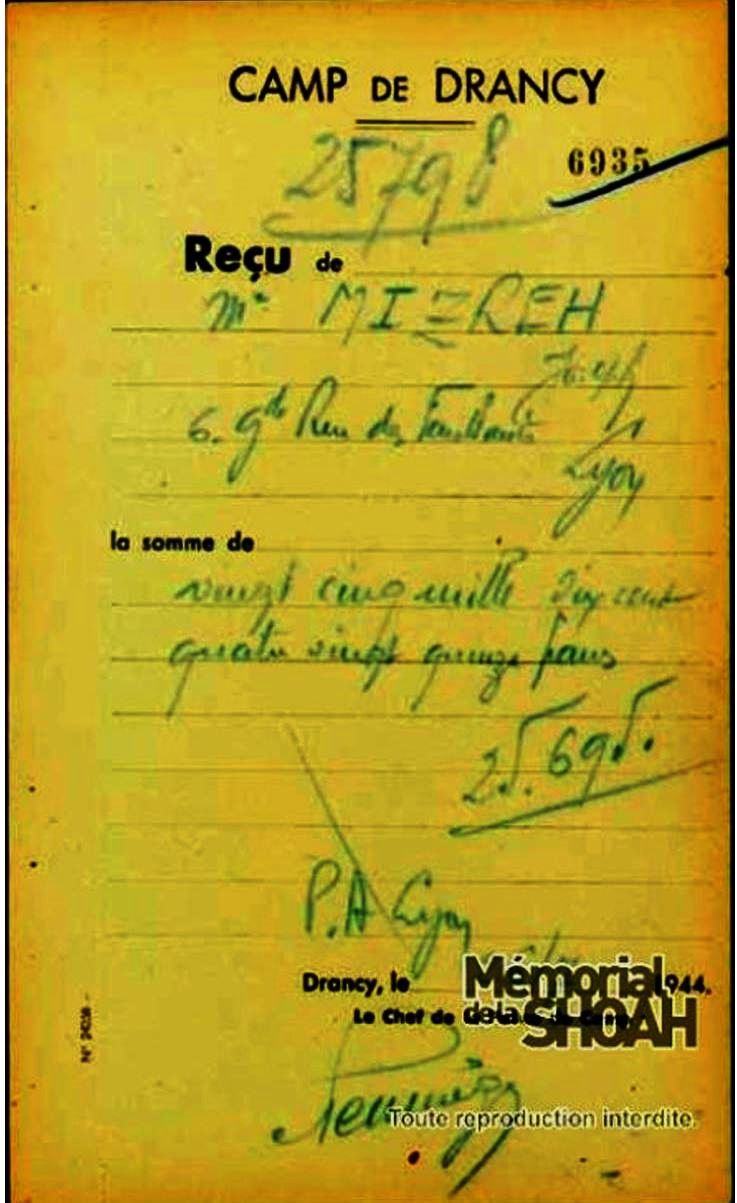 CAMP DE DRANCY
25798
6935
Reçu de
Mr MIZREH
Joseph
6. gde Rue des Feuillants
Lyon
la somme de
vingt cinq mille six cent
quatre vingt quinze francs
25.695.
P.A Lyon
Drancy, le 1944.
Le Chef de
Mémorial
de la SHOAH
Toute reproduction interdite.